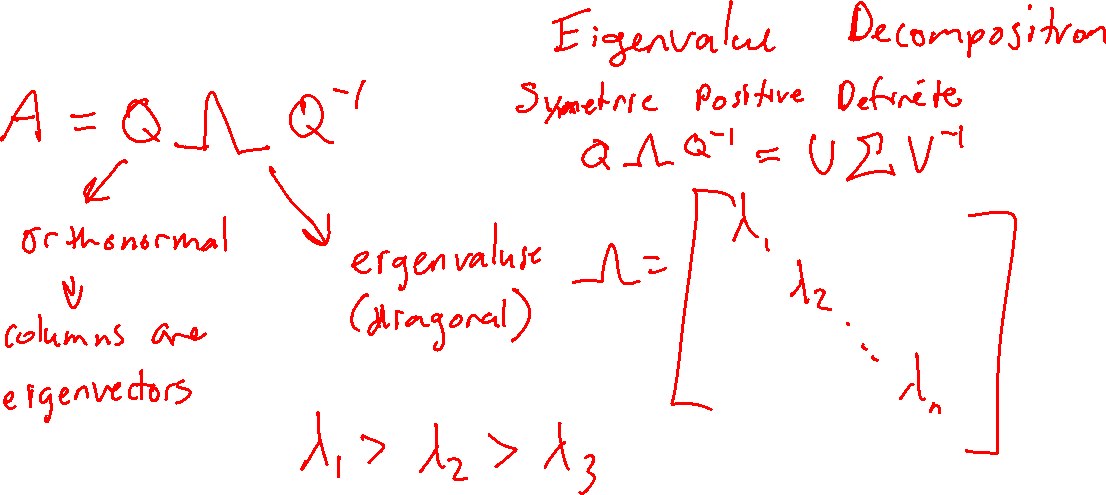 Eigenvalue Decomposition
Symetric Positive Definite
A = Q Λ Q⁻¹
Q Λ Q⁻¹ = U Σ V⁻¹
orthonormal
columns are
eigenvectors
eigenvalues
(diagonal)
Λ = [λ₁ λ₂ ⋱ λₙ]
λ₁ > λ₂ > λ₃